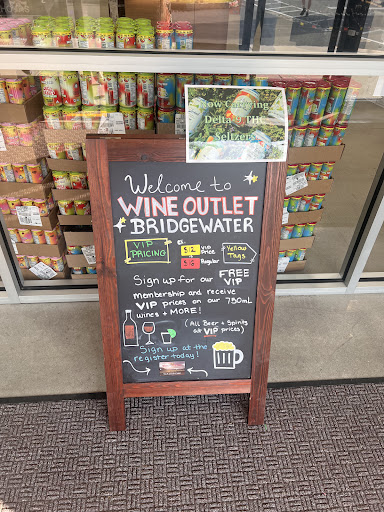 Now Carrying
Delta 9 THC
Seltzers
Welcome to
WINE OUTLET
BRIDGEWATER
VIP
PRICING
VIP
Price
Regular
Yellow
Tags
Sign up for our FREE
VIP
membership and receive
VIP prices on our 750mL
wines + MORE!
(All Beer + Spirits
at VIP prices)
Sign up at the
register today!